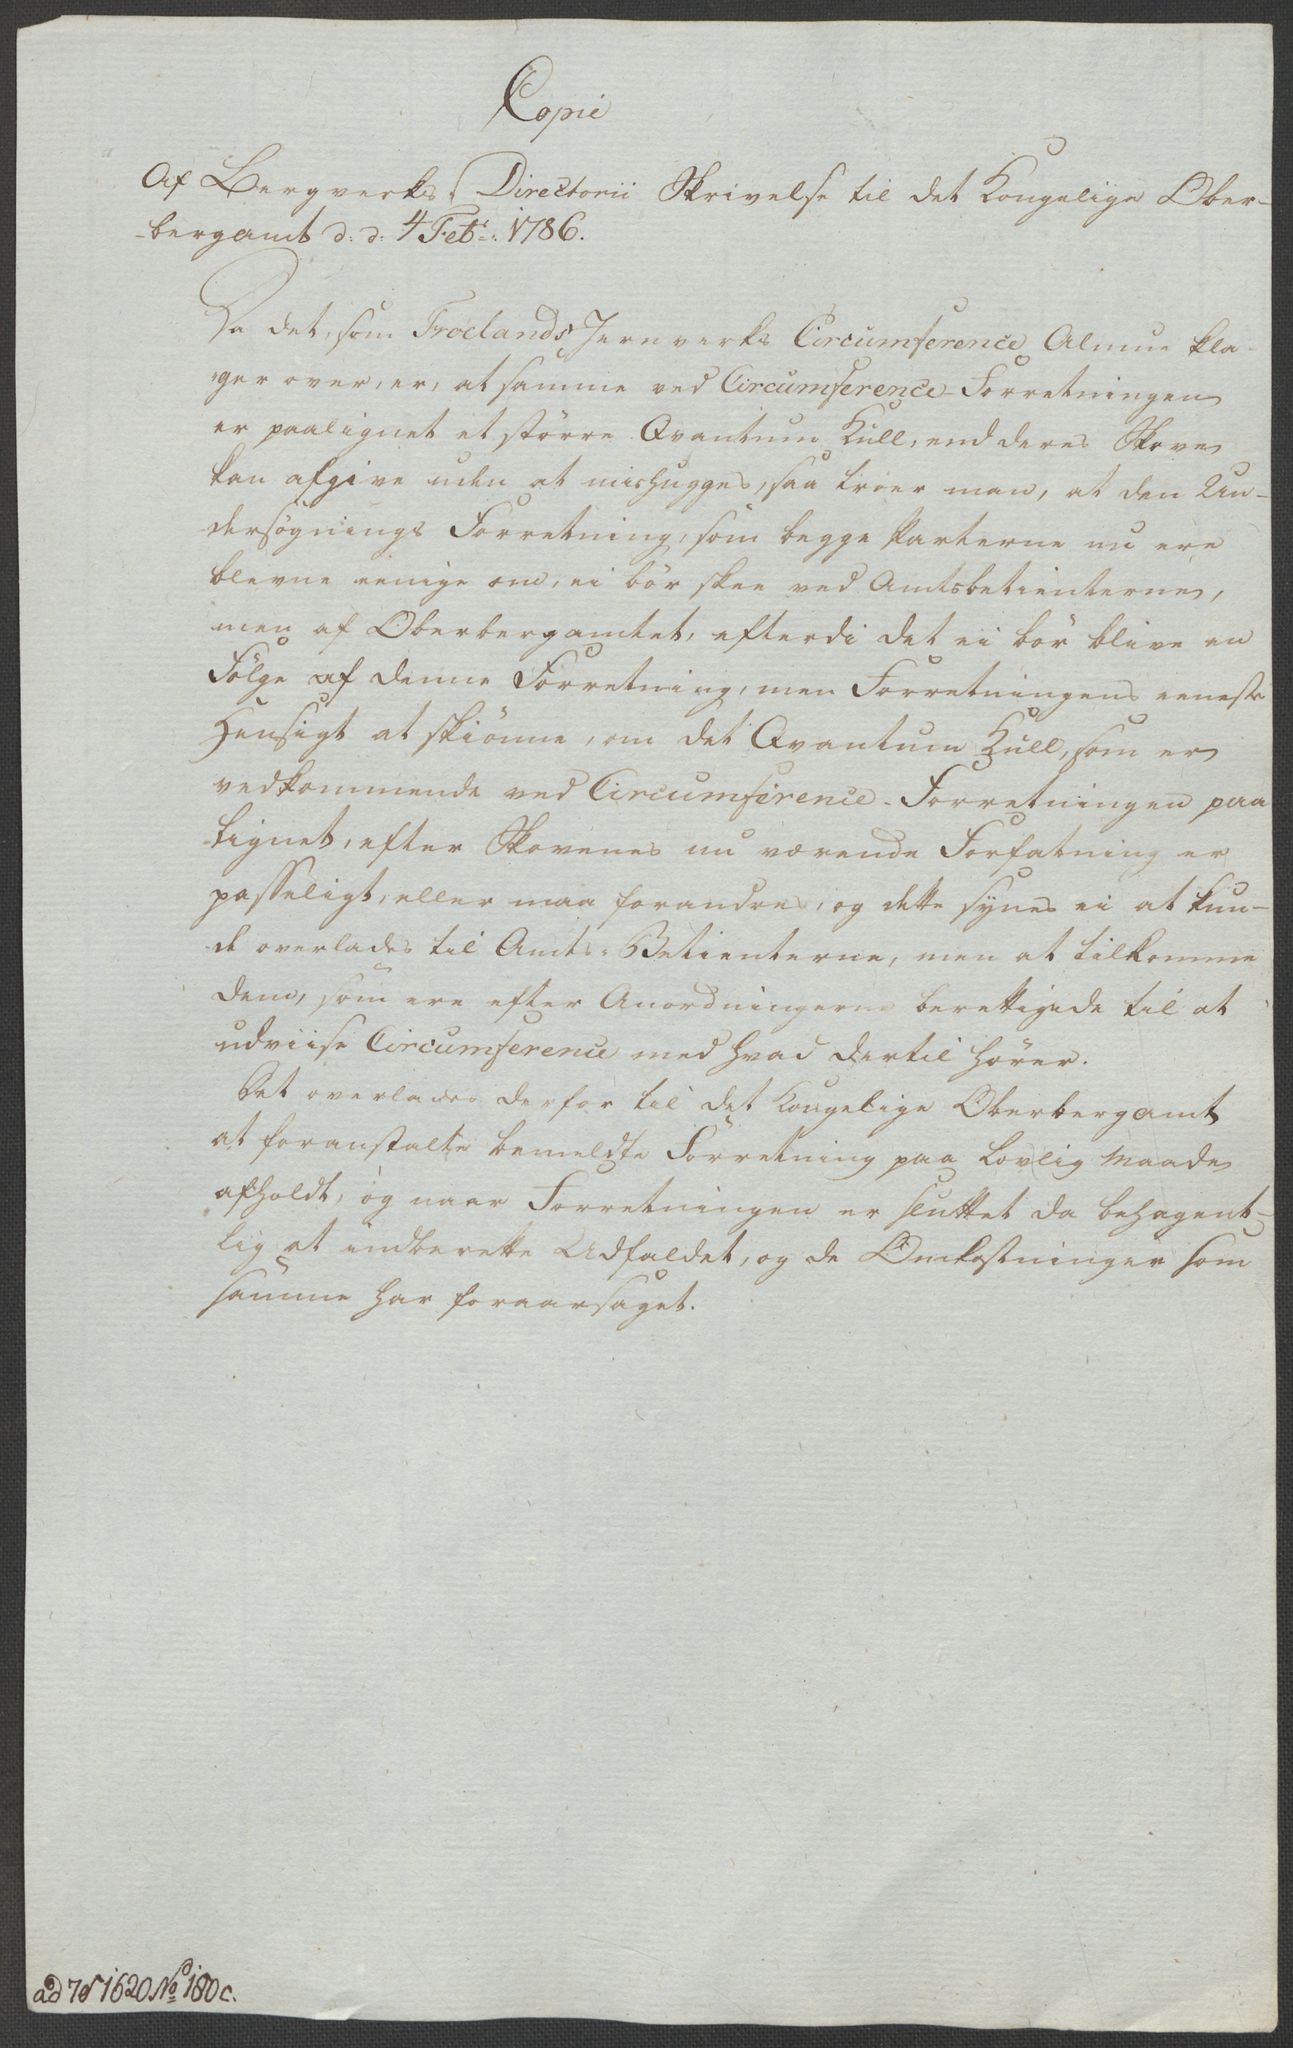 Copie
Af Bergverks-Directorii Skrivelse til det Kongelige Ober-
-bergamt d: d: 4 Febr: 1786.
Da det, som Froelands Jernverks Circumference Almue kla-
-ger over, er, at samme ved Circumference-Forretningen
er paalignet et større Qvantum Kull, end deres Skove
kan afgive uden at mishugges, saa troer man, at den Un-
dersøgnings Forretning, som begge Parterne nu ere
blevne eenige om, ei bør skee ved Amtsbetienterne,
men af Oberbergamtet, efterdi det ei bør blive en
Følge af denne Forretning, men Forretningens eeneste
Hensigt at skiønne, om det Qvantum Kull, som er
vedkommende ved Circumference-Forretningen paa
lignet, efter Skovenes nu værende Forfatning er
passeligt, eller maa forandres, og dette synes ei at kun-
de overlades til Amts-Betienterne, men at tilkomme
dem, som ere efter Anordningerne berettigede til at
udviise Circumference med hvad dertil hører.
Det overlades derfor til det Kongelige Oberbergamt
at foranstalte bemeldte Forretning paa lovlig Maade
afholdt, og naar Forretningen er sluttet da behagent-
lig at indberette Udfaldet, og de Omkostninger som
samme har foraarsaget.
ad 1620 No 180c.